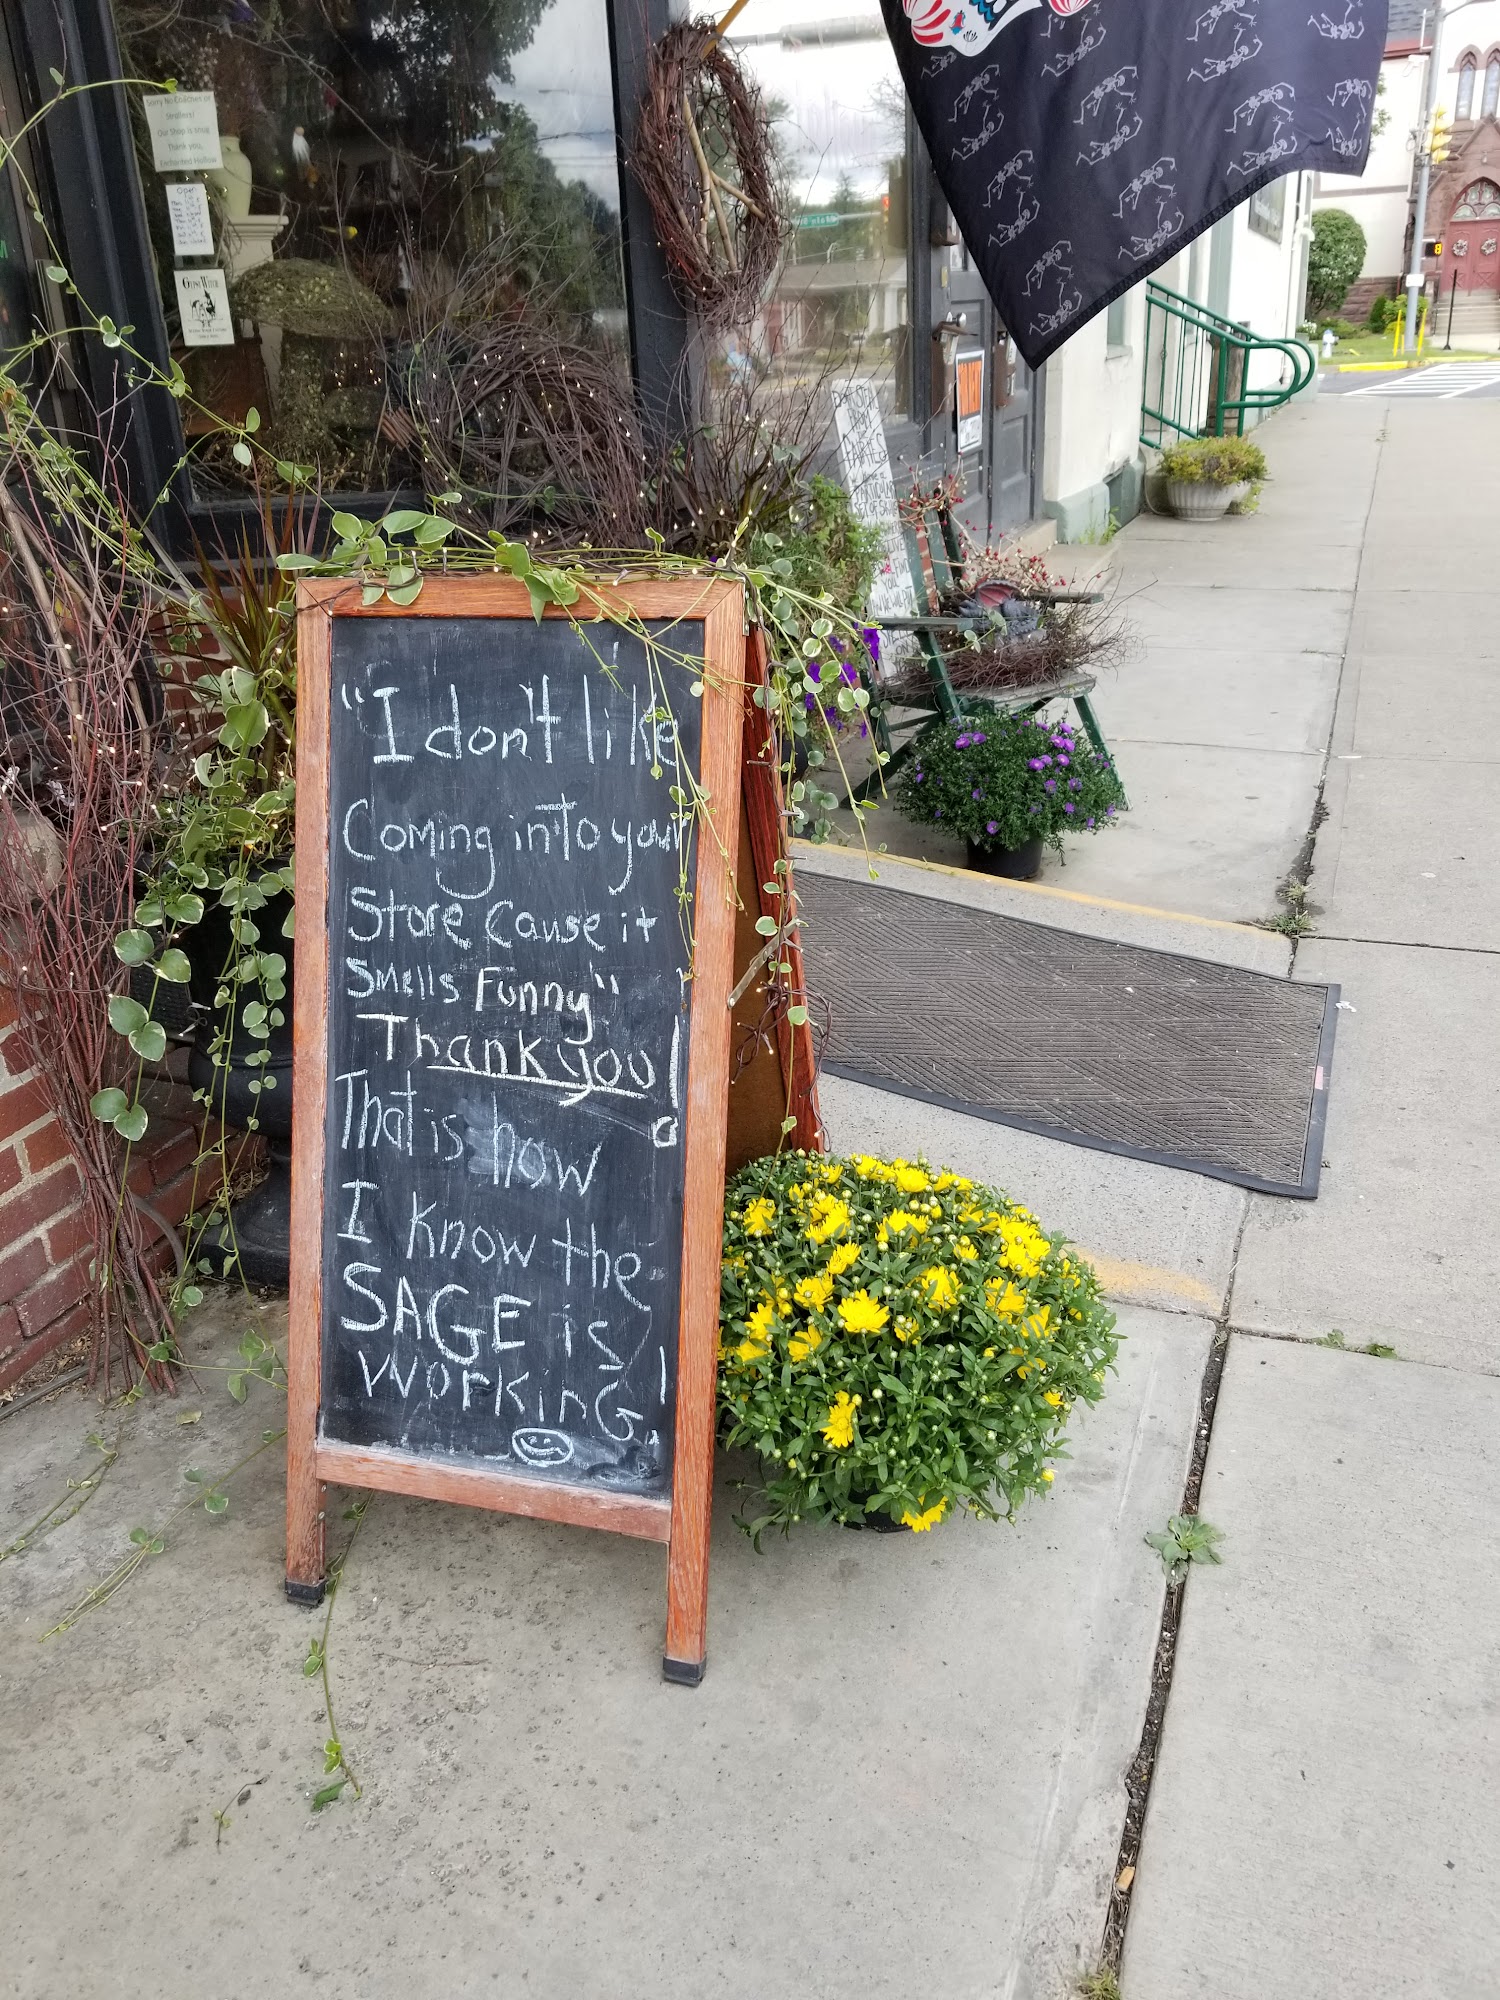 Sorry No Coaches or
strollers!
Our Shop is snug
Thank you,
Enchanted Hollow
Open
GYPSY WITCH
"I don't like
Coming into your
Store Cause it
Smells Funny"
Thank you!
That is how
I know the
SAGE is
WORKinG!